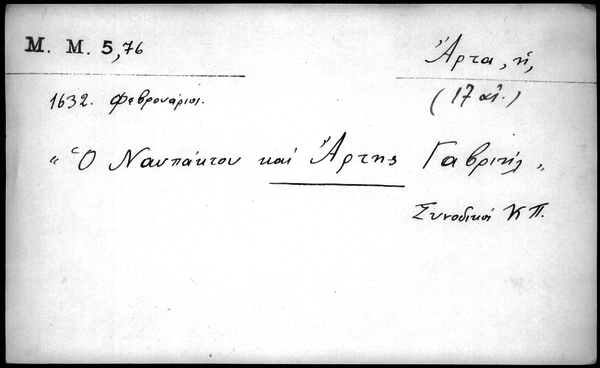 M. M. 5,76
Ἄρτα, ἡ,
(17 αἰ.)
1632. Φεβρουάριος.
“Ὁ Ναυπάκτου καὶ Ἄρτης Γαβριήλ„
Συνοδικοὶ ΚΠ.